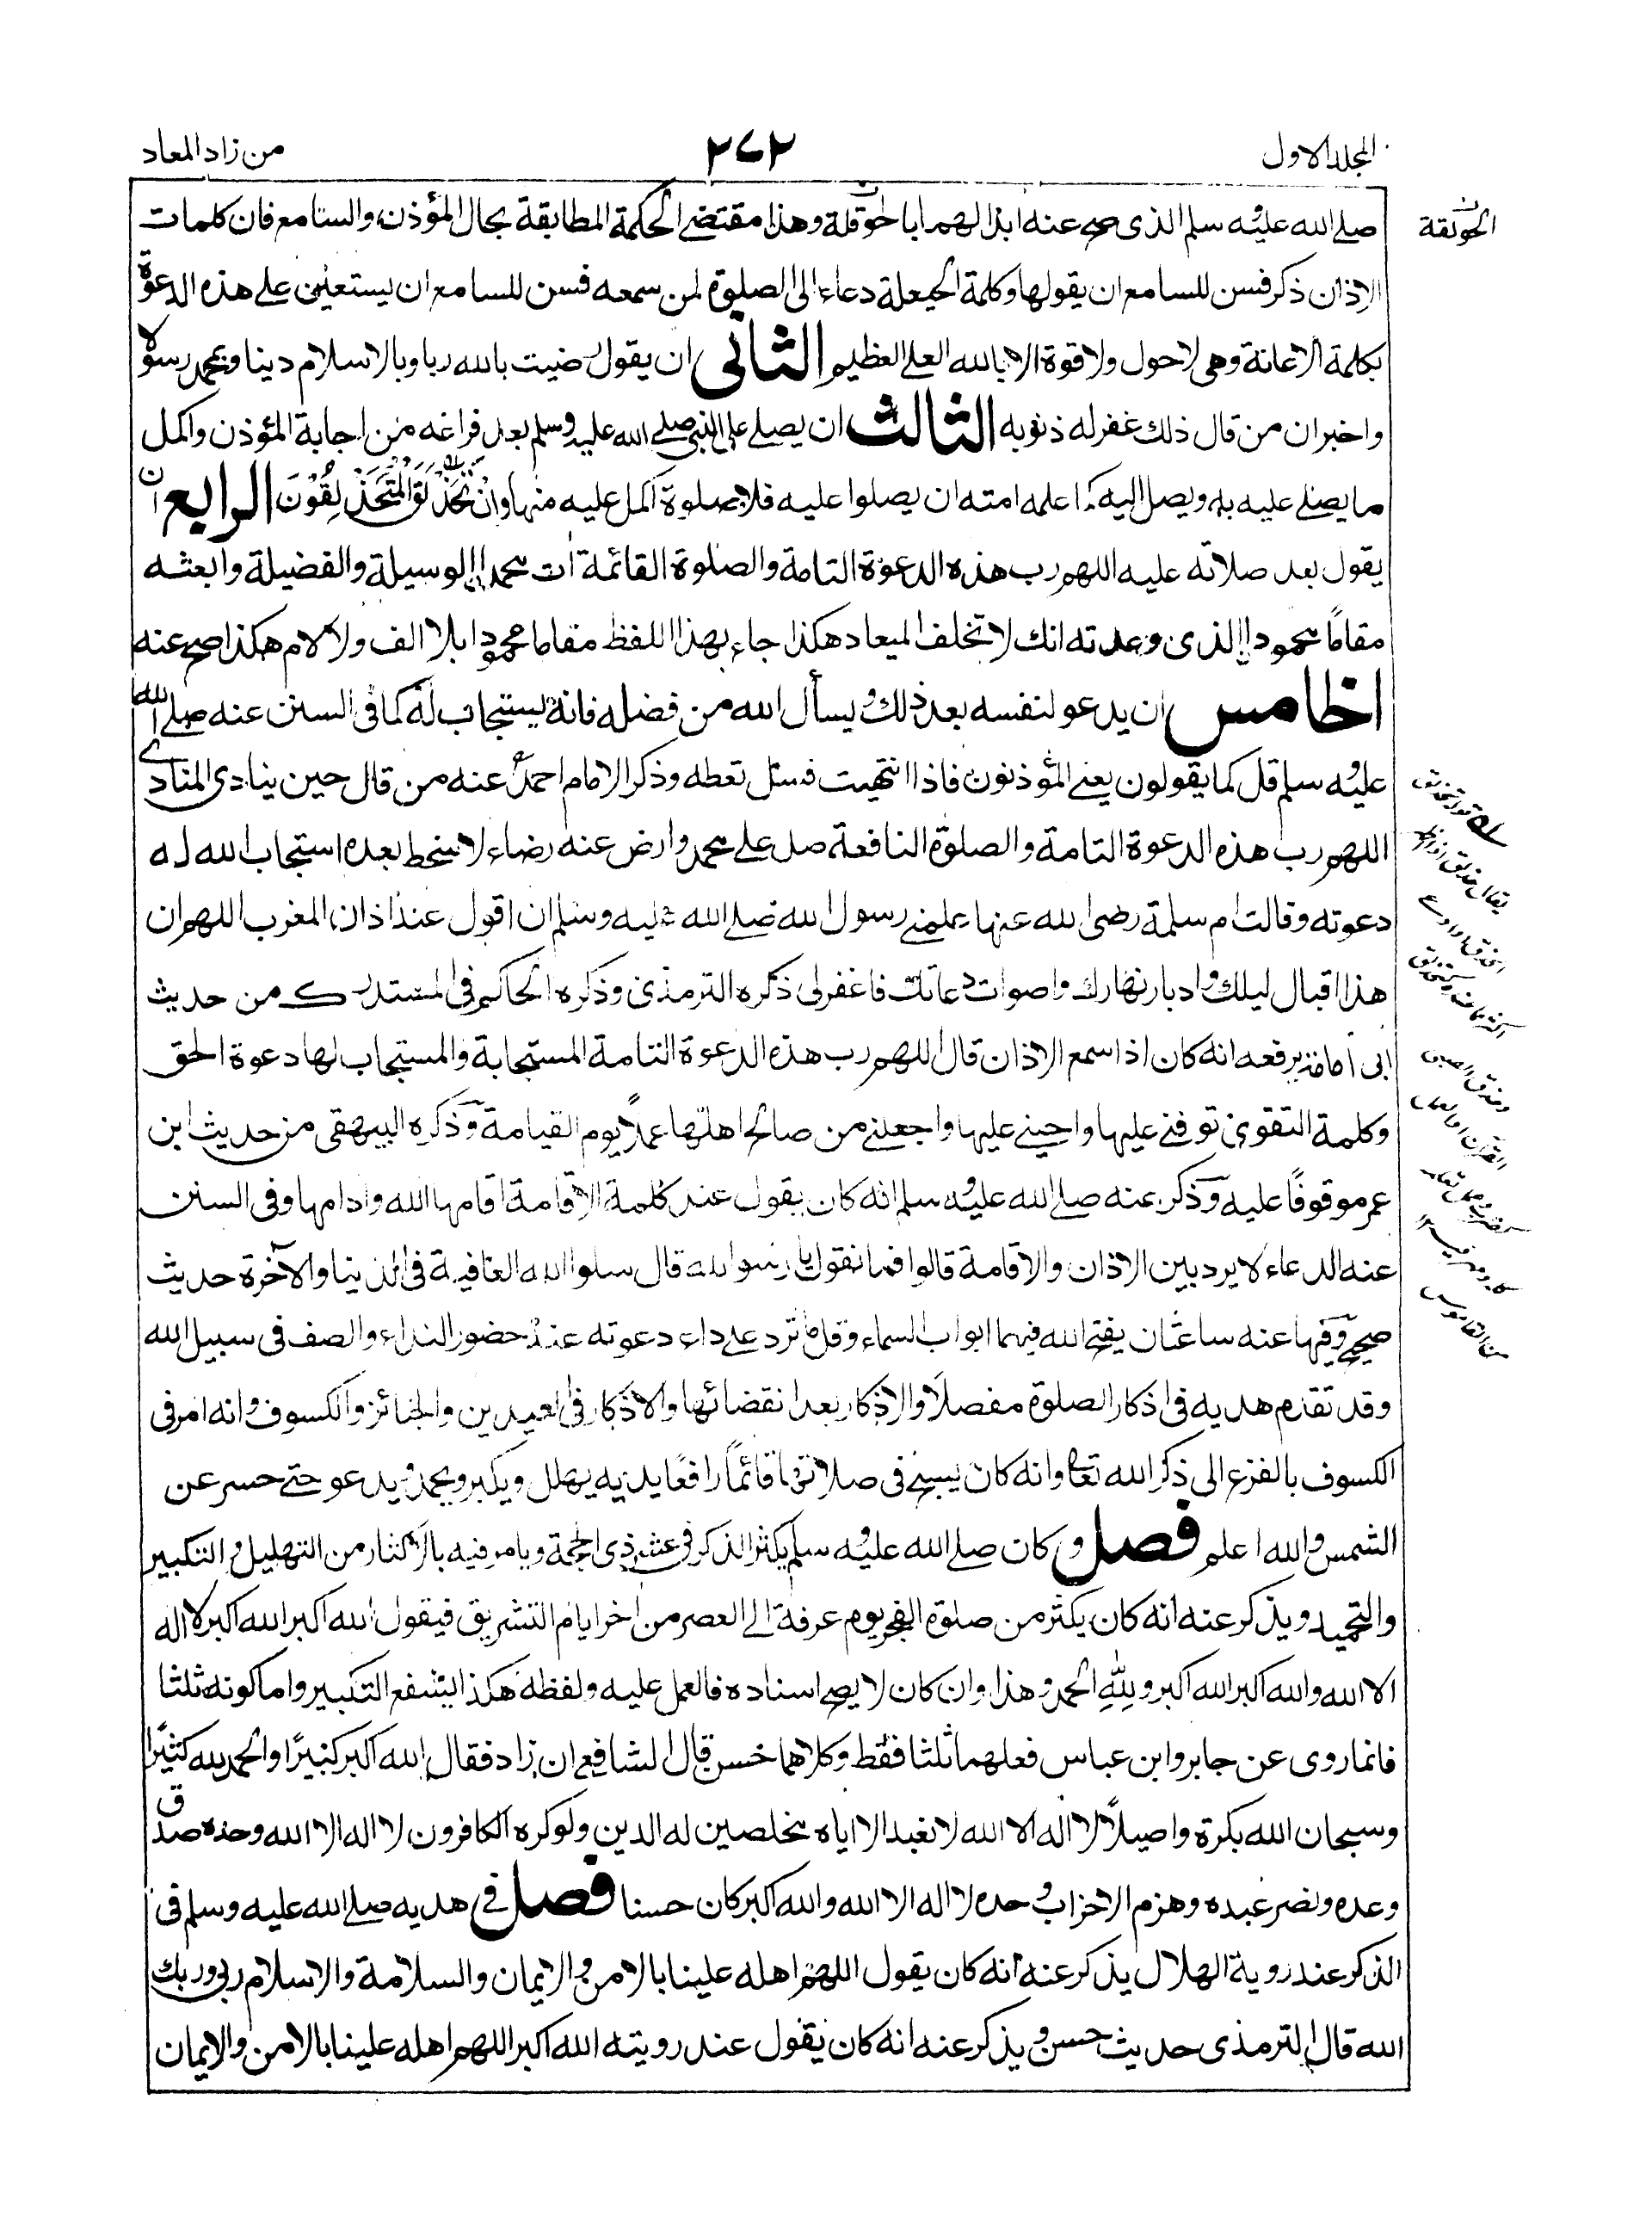 المجلد الاول
٢٧٢
من زاد المعاد
صلے الله عليه وسلم الذى صح عنه ابدالهما بالحوقلة وهذا مقتضے الحكمة المطابقة بحال المؤذن والسامع فان كلمات
الاذان ذكر فسن للسامع ان يقولها وكلمة الحيعلة دعاء الى الصلوة لمن سمعه فسن للسامع ان يستعين على هذه الدعوة
بكلمة الاعانة وهى لا حول ولا قوة الا بالله العلى العظيم الثانى ان يقول رضيت بالله ربا وبالاسلام دينا وبمحمد رسولا
واخبر ان من قال ذلك غفر له ذنوبه الثالث ان يصلے على النبى صلے الله عليه وسلم بعد فراغه من اجابة المؤذن واكمل
ما يصلے عليه به ويصل اليه كما علمه امته ان يصلوا عليه فلا صلوة اكمل عليه منها وان تحذلق المتحذلقون الرابع ان
يقول بعد صلاته عليه اللهم رب هذه الدعوة التامة والصلوة القائمة ات محمدا الوسيلة والفضيلة وابعثه
مقامًا محمودا الذى وعدته انك لا تخلف الميعاد هكذا جاء بهذا اللفظ مقاما محمودا بلا الف ولا لام هكذا صح عنه
الخامس ان يدعو لنفسه بعد ذلك ويسأل الله من فضله فانه يستجاب له كما فى السنن عنه صلے الله
عليه وسلم قل كما يقولون يعنے المؤذنون فاذا انتهيت فسل تعطه وذكر الامام احمد عنه من قال حين ينادى المنادے
اللهم رب هذه الدعوة التامة والصلوة النافعة صل على محمد وارض عنه رضاء لا سخط بعده استجاب الله له
دعوته وقالت ام سلمة رضى الله عنها علمنے رسول الله صلے الله عليه وسلم ان اقول عند اذان المغرب اللهم ان
هذا اقبال ليلك وادبار نهارك واصوات دعاتك فاغفرلى ذكره الترمذى وذكره الحاكم فى المستدرك من حديث
ابى امامة يرفعه انه كان اذا سمع الاذان قال اللهم رب هذه الدعوة التامة المستجابة والمستجاب لها دعوة الحق
وكلمة التقوى توفنے عليها واحينے عليها واجعلنے من صالح اهلها عملًا يوم القيامة وذكره البيهقى من حديث ابن
عمر موقوفًا عليه وذكر عنه صلے الله عليه وسلم انه كان يقول عند كلمة الاقامة اقامها الله وادامها وفى السنن
عنه الدعاء لا يرد بين الاذان والاقامة قالوا فما نقول يا رسول الله قال سلوا الله العافية فى الدنيا والآخرة حديث
صحيح وفيها عنه ساعتان يفتح الله فيهما ابواب السماء وقل ما ترد على داع دعوته عند حضور النداء والصف فى سبيل الله
وقد تقدم هديه فى اذكار الصلوة مفصلًا والاذكار بعد انقضائها والاذكار فى العيدين والجنائز والكسوف وانه امر فى
الكسوف بالفزع الى ذكر الله تعالى وانه كان يسبح فى صلاتها قائمًا رافعًا يديه يهلل ويكبر ويحمد ويدعو حتے حسر عن
الشمس والله اعلم فصل وكان صلے الله عليه وسلم يكثر الذكر فى عشر ذى الحجة ويامر فيه بالاكثار من التهليل والتكبير
والتحميد ويذكر عنه انه كان يكثر من صلوة الفجر يوم عرفة الى العصر من اخر ايام التشريق فيقول الله اكبر الله اكبر لا اله
الا الله والله اكبر الله اكبر ولِلّٰهِ الحمد وهذا وان كان لا يصح اسناده فالعمل عليه ولفظه هكذا ليشفع التكبير واما كونه ثلثا
فانما روى عن جابر وابن عباس فعلهما ثلثا فقط وكلاهما حسن قال الشافعى ان زاد فقال الله اكبر كبيرًا والحمد لله كثيرًا
وسبحان الله بكرة واصيلًا لا اله الا الله لا نعبد الا اياه مخلصين له الدين ولو كره الكافرون لا اله الا الله وحده صدق
وعده ونصر عبده وهزم الاحزاب وحده لا اله الا الله والله اكبر كان حسنا فصل فى هديه صلے الله عليه وسلم فى
الذكر عند روية الهلال يذكر عنه انه كان يقول اللهم اهله علينا بالامن والايمان والسلامة والاسلام ربى وربك
الله قال الترمذى حديث حسن ويذكر عنه انه كان يقول عند رويته الله اكبر اللهم اهله علينا بالامن والايمان
الحولقة
من القاموس